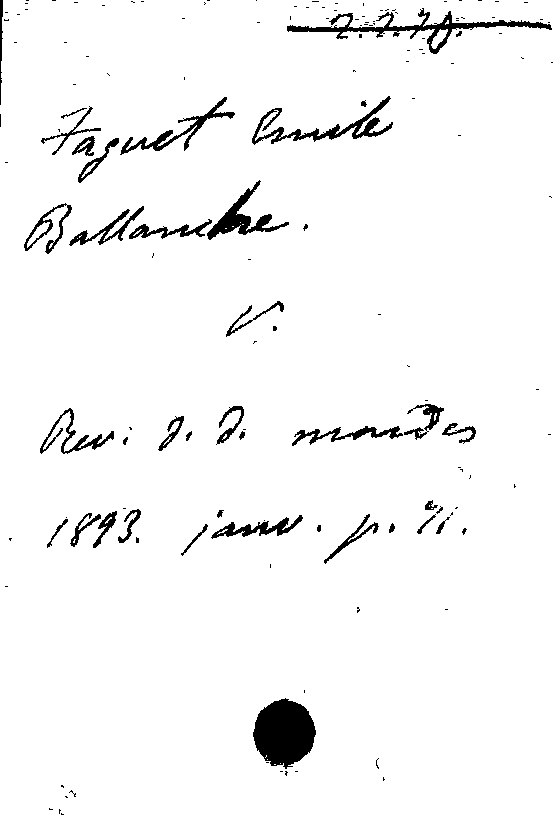 Faguet Emile
Ballanche.
V.
Rev. d. d. mondes
1893. janv. p. 71.